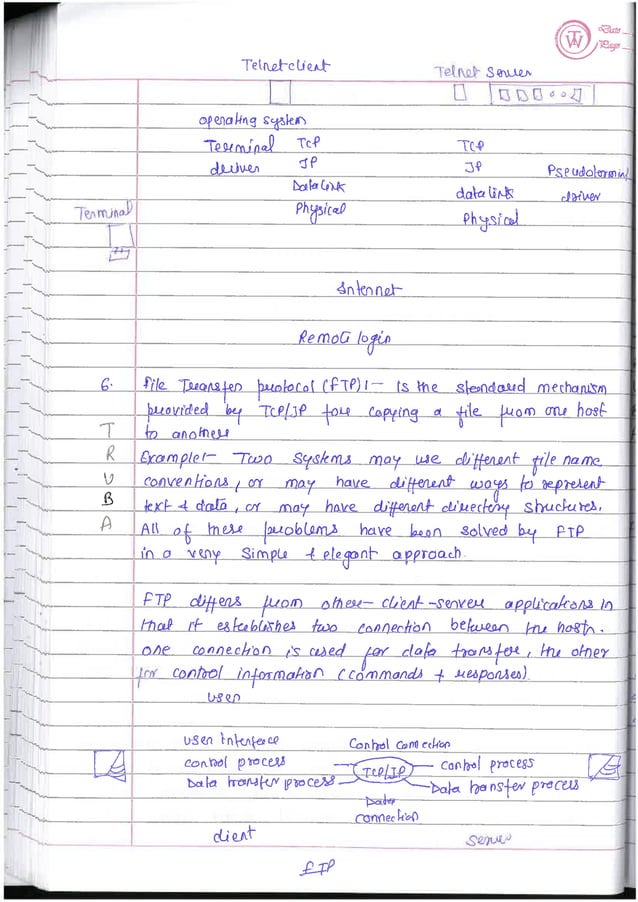 Date
Page
Telnet client Telnet Server
operating system
Terminal TCP TCP
driver IP IP Pseudoterminal
Data Link data link driver
Terminal Physical Physical
Internet
Remote login
6. File Transfer protocol (FTP):- Is the standard mechanism
provided by TCP/IP for copying a file from one host
T to another
R Example:- Two systems may use different file name
U conventions, or may have different ways to represent
B text & data, or may have different directory structures.
A All of these problems have been solved by FTP
in a very simple & elegant approach.
FTP differs from other-client-server applications in
that it establishes two connection between the hosts.
one connection is used for data transfer, the other
for control information (commands + responses).
user
user interface Control connection
control process TCP/IP control process
Data transfer process Data transfer process
Data
connection
client server
FTP